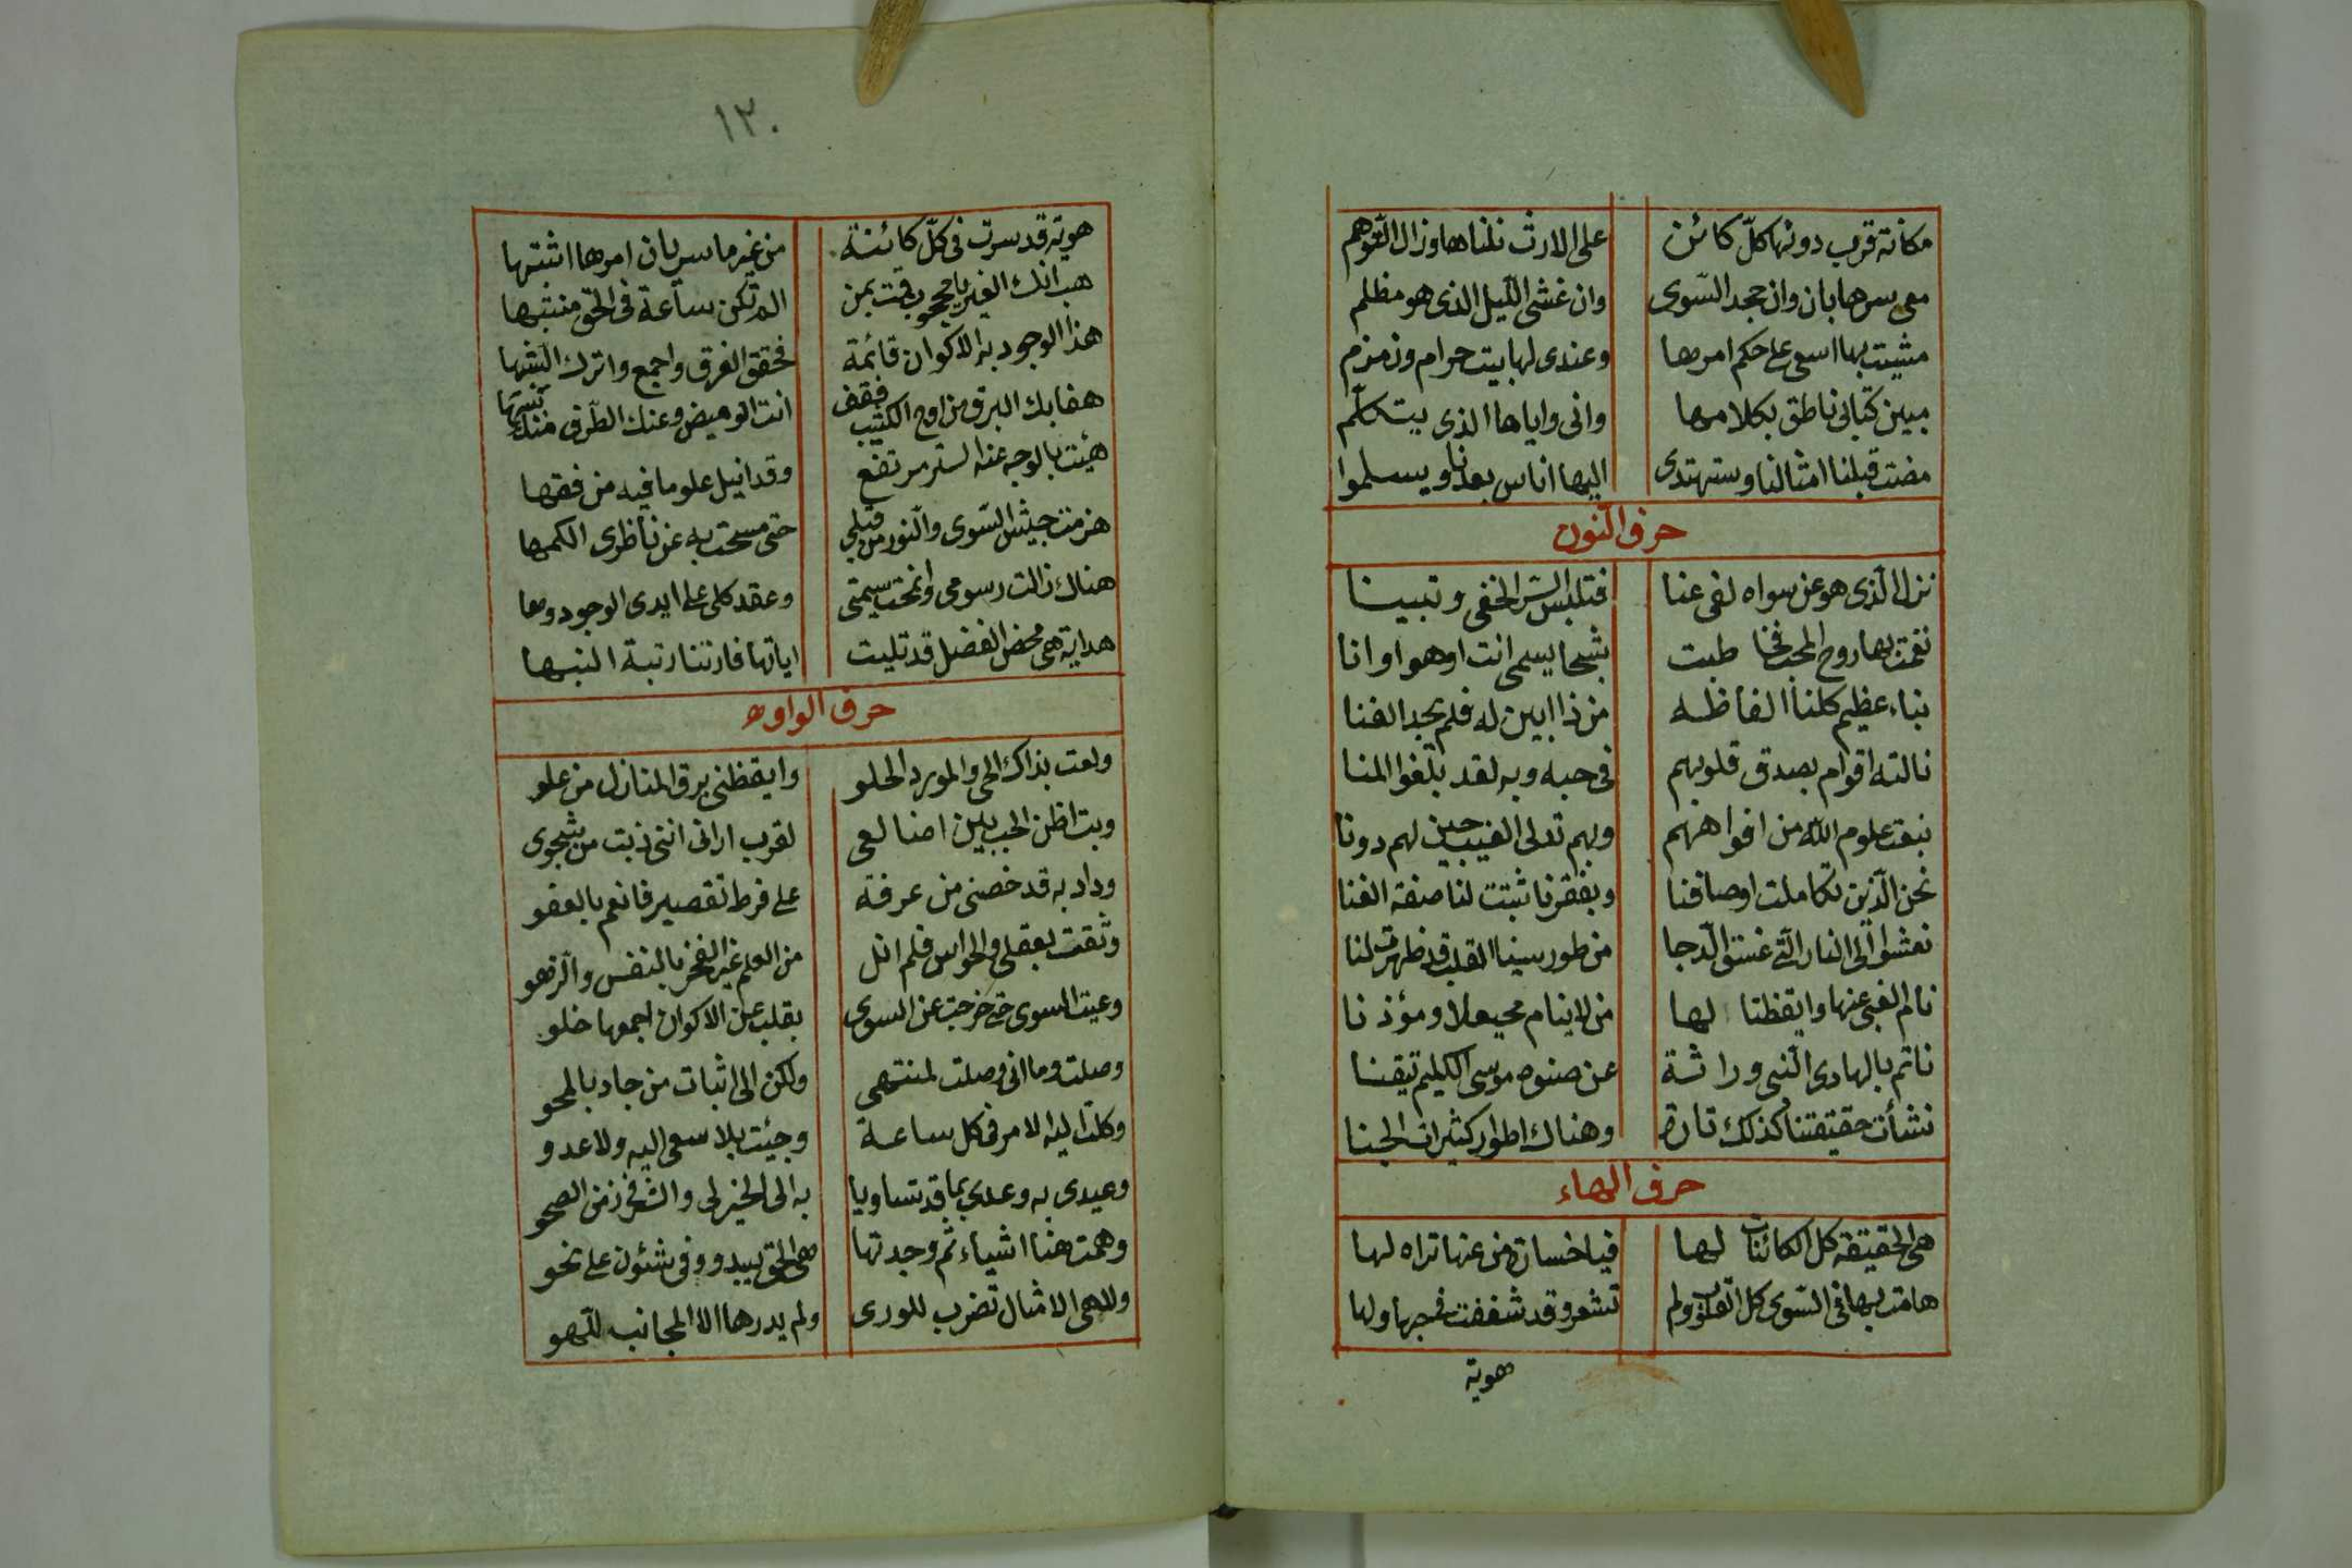 مكانة قرب دونها كلّ كائن على الارث نلناها وزال التوهم
معى سرها بان وان جحد السّوى وان غشى اللّيل الذى هو مظلم
مشيت بها اسعى على حكم امرها وعندى لها بيت حرام وزمزم
مبين كتابى ناطق بكلامها وانى واياها الذى يتكلّم
مضت قبلنا امثالنا وستهتدى اليها اناس بعدنا ويسلموا
حرف النّون
نزل الّذى هو عن سواه لفى عنا فتلبّس السّر الخفى وتبينا
نفخت بها روح المحب طبت شبحا يسمى انت او هو او انا
نباء عظيم كلنا الفاظه من ذا ابين له فلم يجد الفنا
نالته اقوام بصدق قلوبهم فى حبه وبه لقد بلّغوا المنا
نبعت علوم اللّه من افواههم وبهم تدلى الغيب حين لهم دونا
نحن الّذين تكاملت اوصافنا وبفقرنا ثبتت لنا صفة الغنا
نعشوا الى النار الّتى غسق الّدجا من طور سينا القلب قد ظهرت لنا
نام الغبى عنها وايقظنا لها من لا ينام محيعلا ومؤذنا
ناتم بالهادى النّبى وراثة عن صنوه موسى الكليم تيقنا
نشأت حقيقتنا كذلك تارة وهناك اطوار كثيرات الجنا
حرف الهاء
هى الحقيقة كل الكائنات لها فيا خسارة من عنها تراه لها
هامت بها فى السّوى كل القلوب ولم تشعر وقد شغفت فى حبها ولها
هوية
١٣٠
هوية قد سرت فى كلّ كائنة من غير ما سريان امرها اثبتها
هب انك الغير يا محجوب قمت بمن الم تكن ساعة فى الحق منتبها
هذا الوجود به الاكوان قائمة فحقق الفرق واجمع واترك الشبها
هفا بك البرق من اوج الكثيب فقف انت الوميض وعنك الطّرف منك
هيئت بالوجه عنه الستر مرتفع وقد انيل علوما فيه من فقها
هزمت جيش السّوى والّنور من قبلى حتى مسحت به عن ناظرى الكمها
هناك زالت رسومى وانمحت سيمتى وعقد كلى على ايدى الوجود وها
هداية هى محض الفضل قد تليت اياتها فارتنا رتبة النبها
حرف الواو
ولعت بذاك الحى والمورد الحلو وايقظنى برق المنازل من علو
وبت اظن الحب بين اضالعى لقرب ارانى اننى ذبت من شجوى
وداد به قد خصنى من عرفته على فرط تقصير فانعم بالعفو
وثقت بعقلى والحواس فلم انل من العلم غير الفخر بالنفس والّزهو
وعيت السوى حتى خرجت عن السوى بقلب عن الاكوان اجمعها خلو
وصلت وما انى وصلت لمنتهى ولكن الى اثبات من جاد بالمحو
وكلت اليه الامر فى كل ساعة وجيئت بلا سعى اليه ولا عدو
وعيدى به وعدى بما قد تساويا به الى الخير لى والشر فى زمن الصحو
وهمت هنا اشياء ثم وجدتها هى الحق يبدو وفى شئون على نحو
وللّه هى الامثال تضرب للورى ولم يدرها الا المجانب للّهو